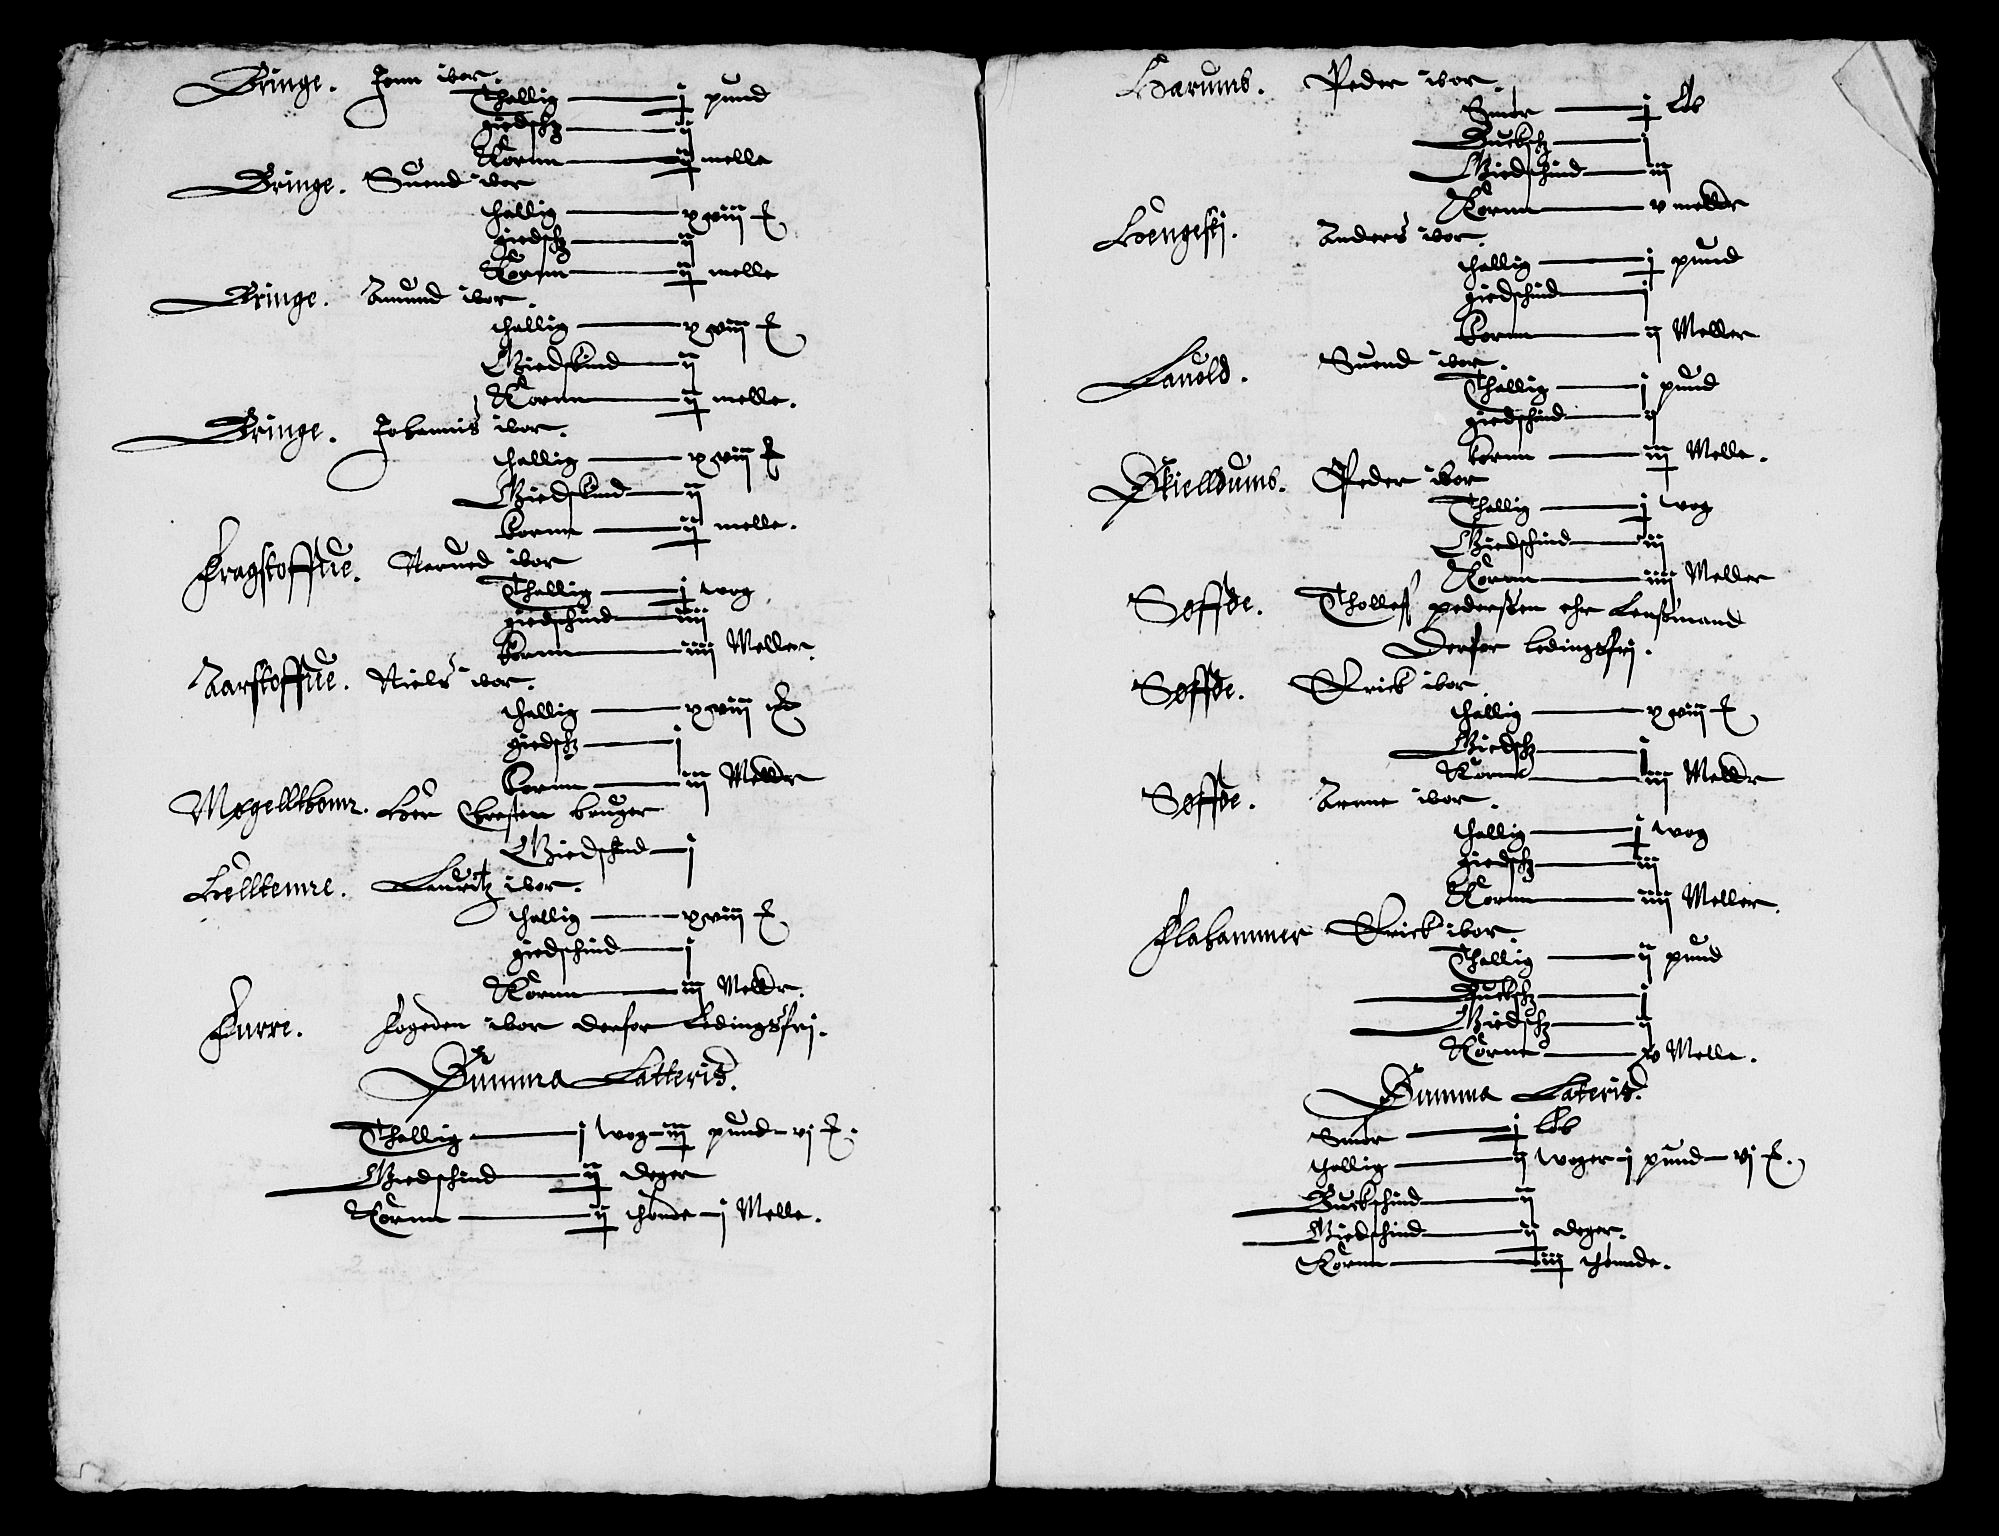 Bringe. Jonn ibor.
Thallig — j pund
giedsch — ij
Kornn — ij melle
Bringe. Suend ibor
thallig — xviij £
giedsch — ij
Kornn — ij melle
Bringe. Amund ibor.
thallig — xviij £
Giedskind — ij
Kornn — ij melle.
Bringe. Johannis ibor.
thallig — xviij £
Giedskind — ij
kornn — ij melle.
Kragstoffue. ibor
Thallig — j wog
giedschind — iiij
kornn — iiij Meller.
Aarstoffue. Niels ibor.
thallig — xviij £
giedsch — j
kornn — iij Meller
Megelltbonn. Her Chresten bruger
Giedschind — j
Helltemre. Lauritz ibor.
thallig — xviij £
giedschind — j
Kornn — iij Meller.
Furre. Fogeden ibor derfor Ledingsfrj.
Summa Latteris.
Thallig — j wog — iij pund — vj £.
Giedschind — ij deger
Kornn — ij thønde — j Melle.
Harums. Peder ibor.
Smør — j Lb
Bucksch — j
Giedschind — iij
Kornn — v meller
Hengeskj. Anders ibor.
thallig — j pund
giedschind — j
kornn — ij Meller
Lauold. Suend ibor.
Thallig — j pund
giedschind — ij
kornn — iij Melle.
Skielldums. Peder ibor
Thallig — j wog
Giedschind — iij
Kornn — iiij Meller
Søffde. Tholleff pedersen ehr Lensmand
Derfor ledingsfrj.
Søffde. Erick ibor
thallig — xviij £
Giedsch — j
Kornn — iij Meller
Søffde. Arnne ibor.
thallig — j wog
giedsch — iij
Kornn — iiij Meller.
Flahammer Erick ibor.
Thallig — ij pund
Bucksch — j
Giedsch — ij
Kornn — xv Melle.
Summa Lateris.
Smør — j Lb
thallig — ij woger — j pund — vj £.
Buckschind — ij
Giedschind — ij deger.
Kornn — iij thønnde.